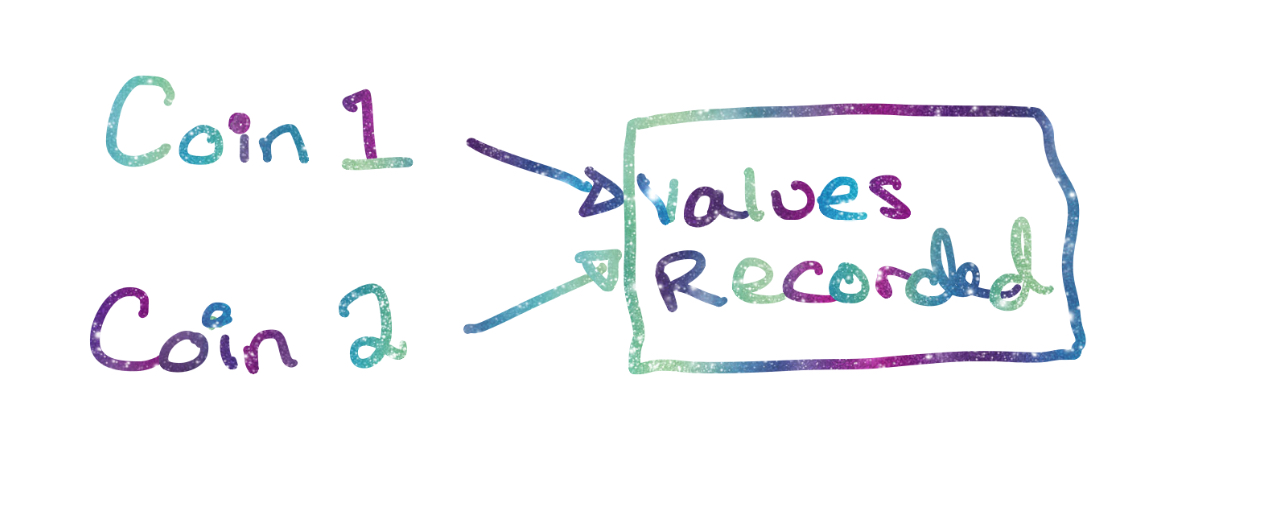 Coin 1
Coin 2
values
Recorded